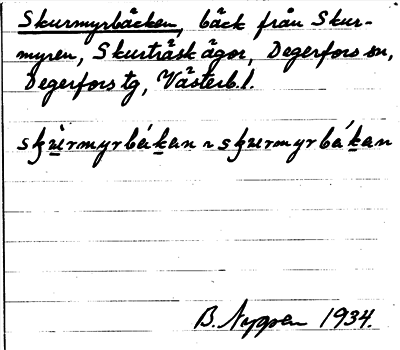 Skurmyrbäcken, bäck från Skur-
myren, Skurträsk ägor, Degerfors sn,
Degerfors tg, Västerb. l.
skùrmyrbákan ~ skurmyrbákan
B. Nygren 1934.